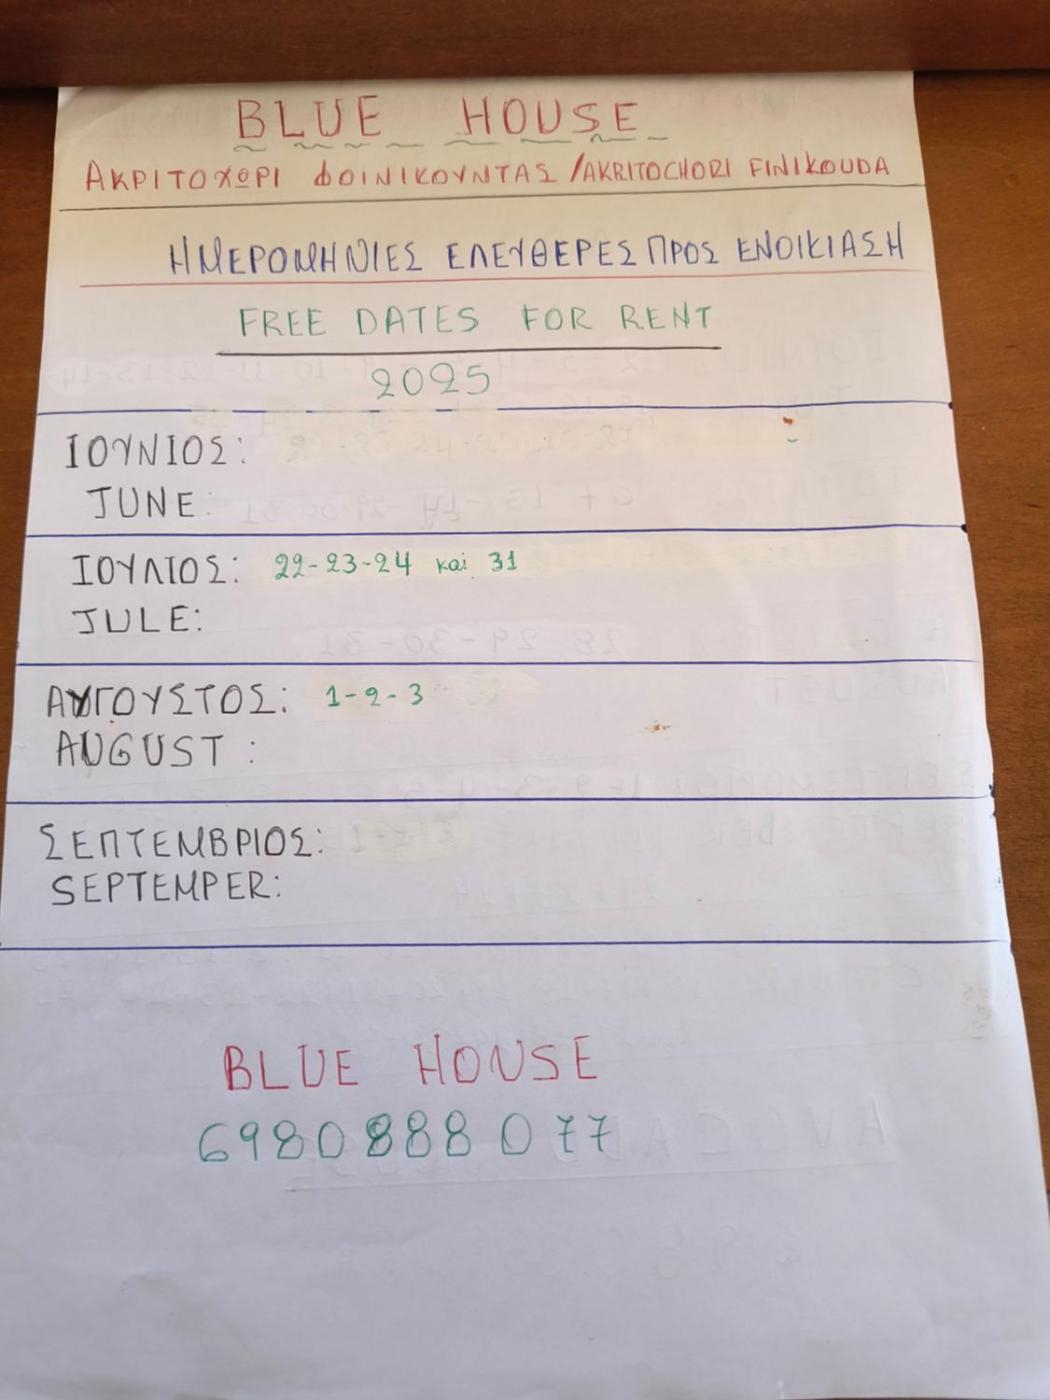 BLUE HOUSE
ΑΚΡΙΤΟΧΩΡΙ ΦΟΙΝΙΚΟΥΝΤΑΣ /AKRITOCHORI FINIKOUDA
ΗΜΕΡΟΜΗΝΙΕΣ ΕΛΕΥΘΕΡΕΣ ΠΡΟΣ ΕΝΟΙΚΙΑΣΗ
FREE DATES FOR RENT
2025
ΙΟΥΝΙΟΣ:
JUNE:
ΙΟΥΛΙΟΣ: 22-23-24 και 31
JULE:
ΑΥΓΟΥΣΤΟΣ: 1-2-3
AUGUST :
ΣΕΠΤΕΜΒΡΙΟΣ:
SEPTEMPER:
BLUE HOUSE
6980888077